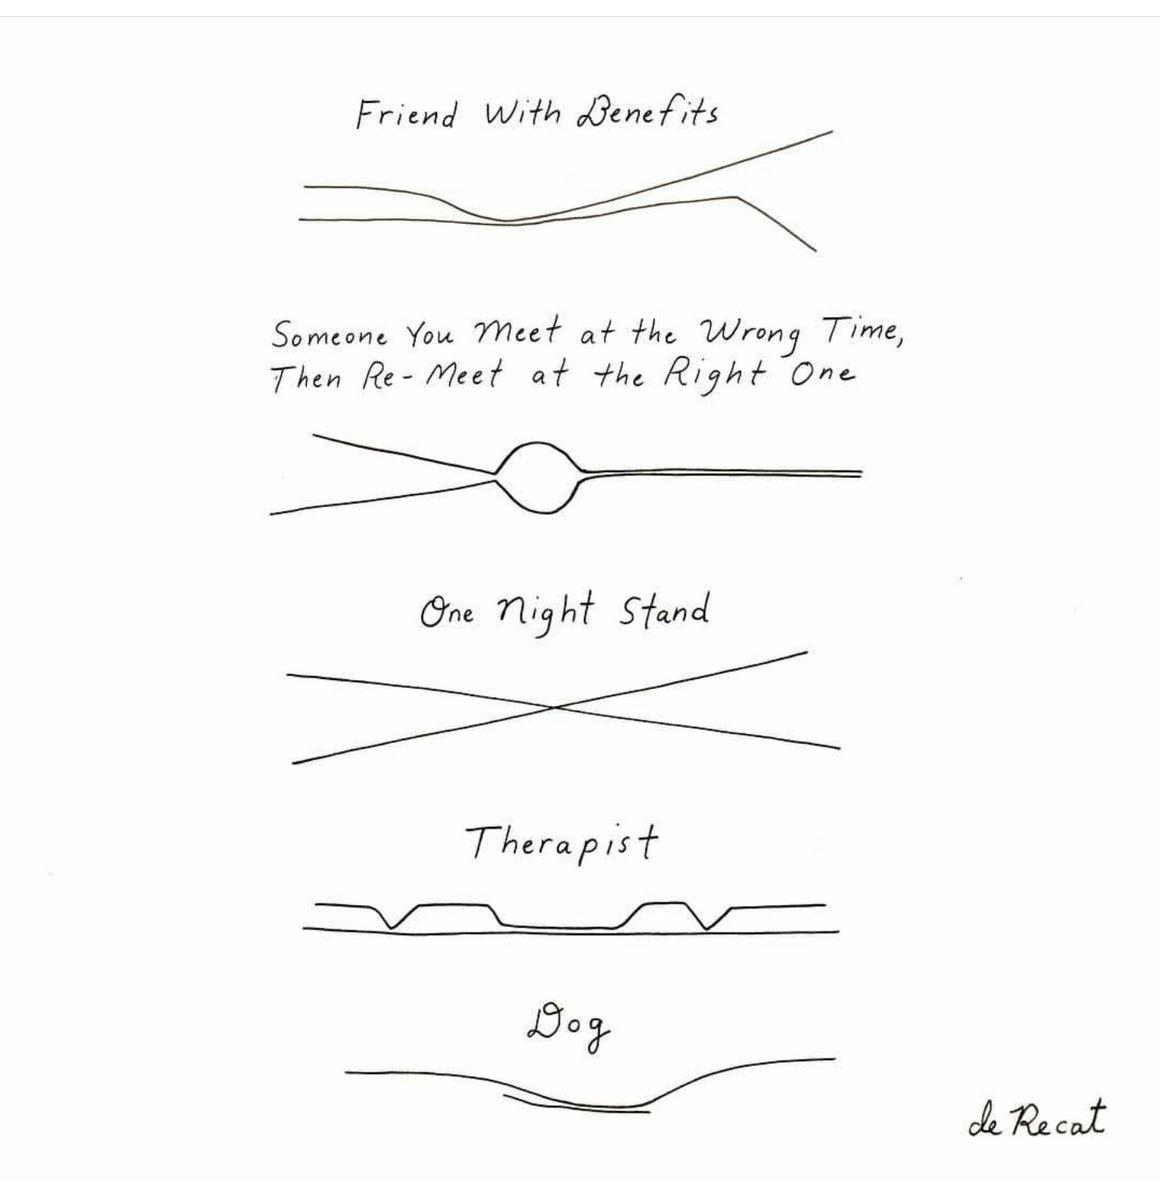 Friend With Benefits
Someone You Meet at the Wrong Time,
Then Re-Meet at the Right One
One Night Stand
Therapist
Dog
de Recat